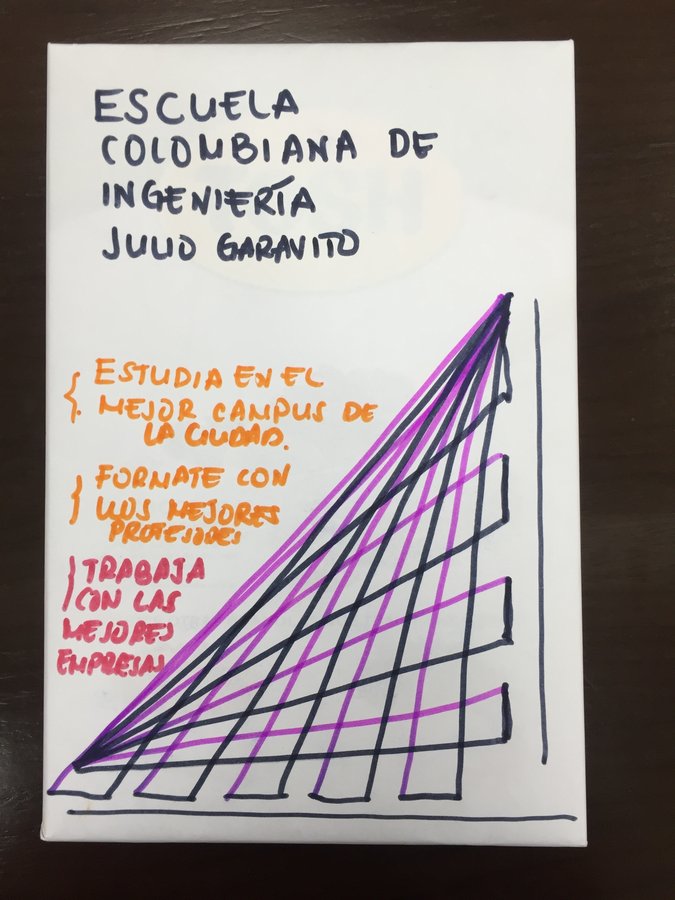 ESCUELA
COLOMBIANA DE
INGENIERÍA
JULIO GARAVITO
ESTUDIA EN EL
MEJOR CAMPUS DE
LA CIUDAD.
FORMATE CON
LOS MEJORES
PROFESORES
TRABAJA
CON LAS
MEJORES
EMPRESAS